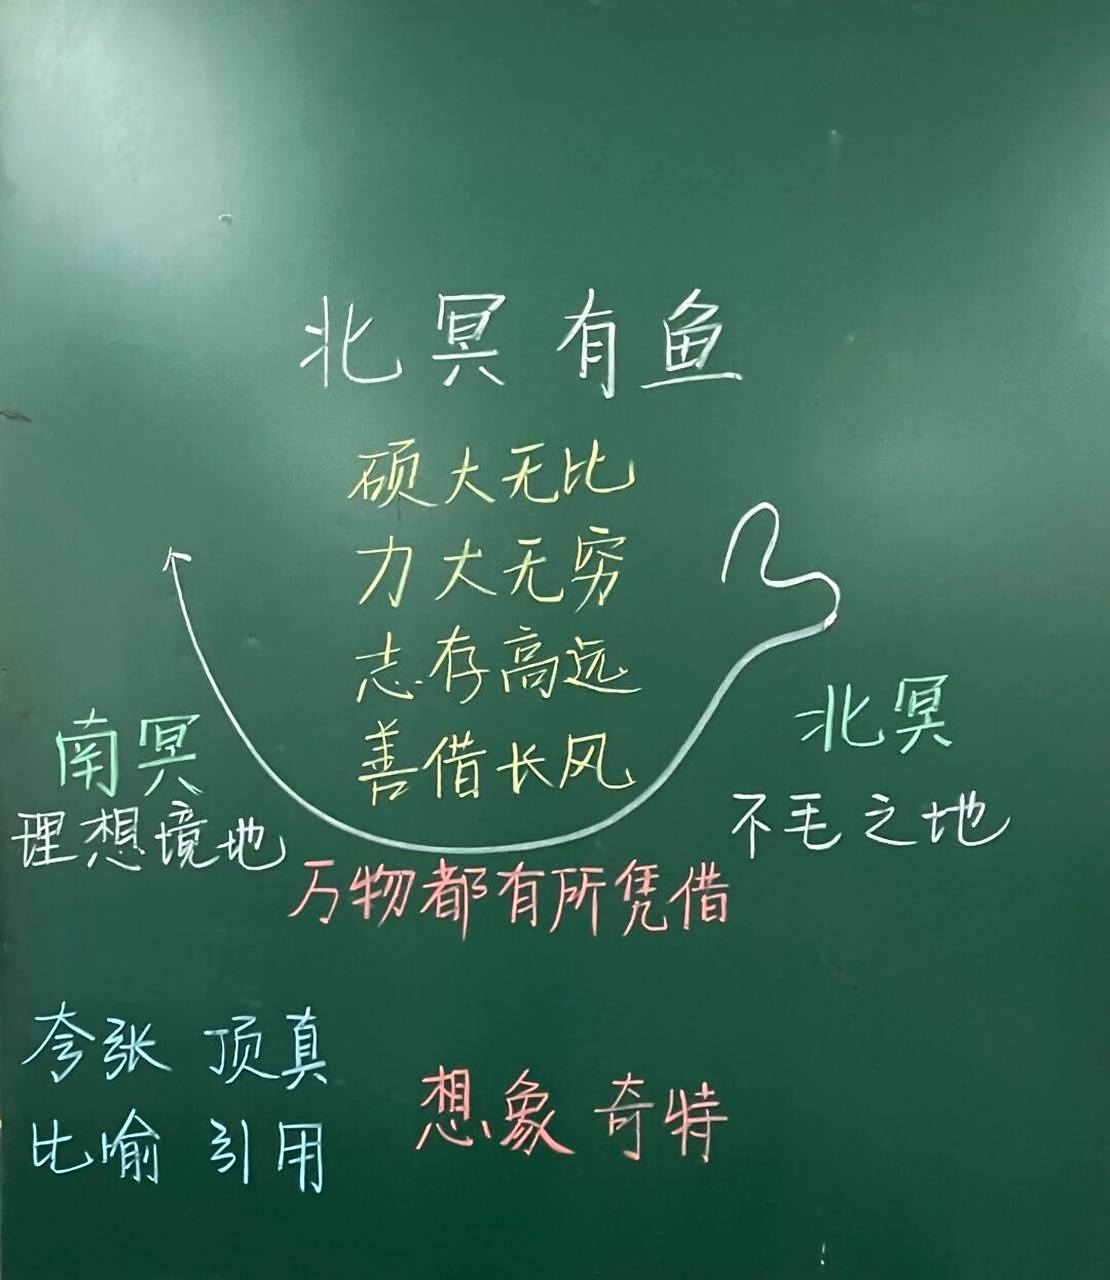 北冥有鱼
硕大无比
力大无穷
志存高远
善借长风
南冥
理想境地
北冥
不毛之地
万物都有所凭借
夸张 顶真
比喻 引用
想象 奇特